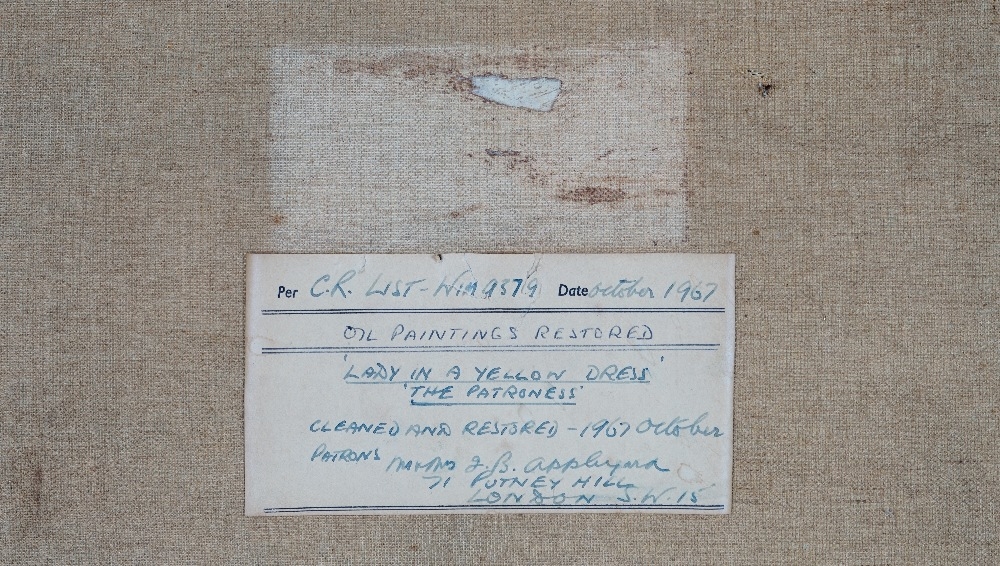 Per C.R. LIST - Wim 9379 Date October 1967
OIL PAINTINGS RESTORED
'LADY IN A YELLOW DRESS'
'THE PATRONESS'
CLEANED AND RESTORED - 1967 October
PATRONS Appleyard
71 PUTNEY HILL
LONDON S.W. 15